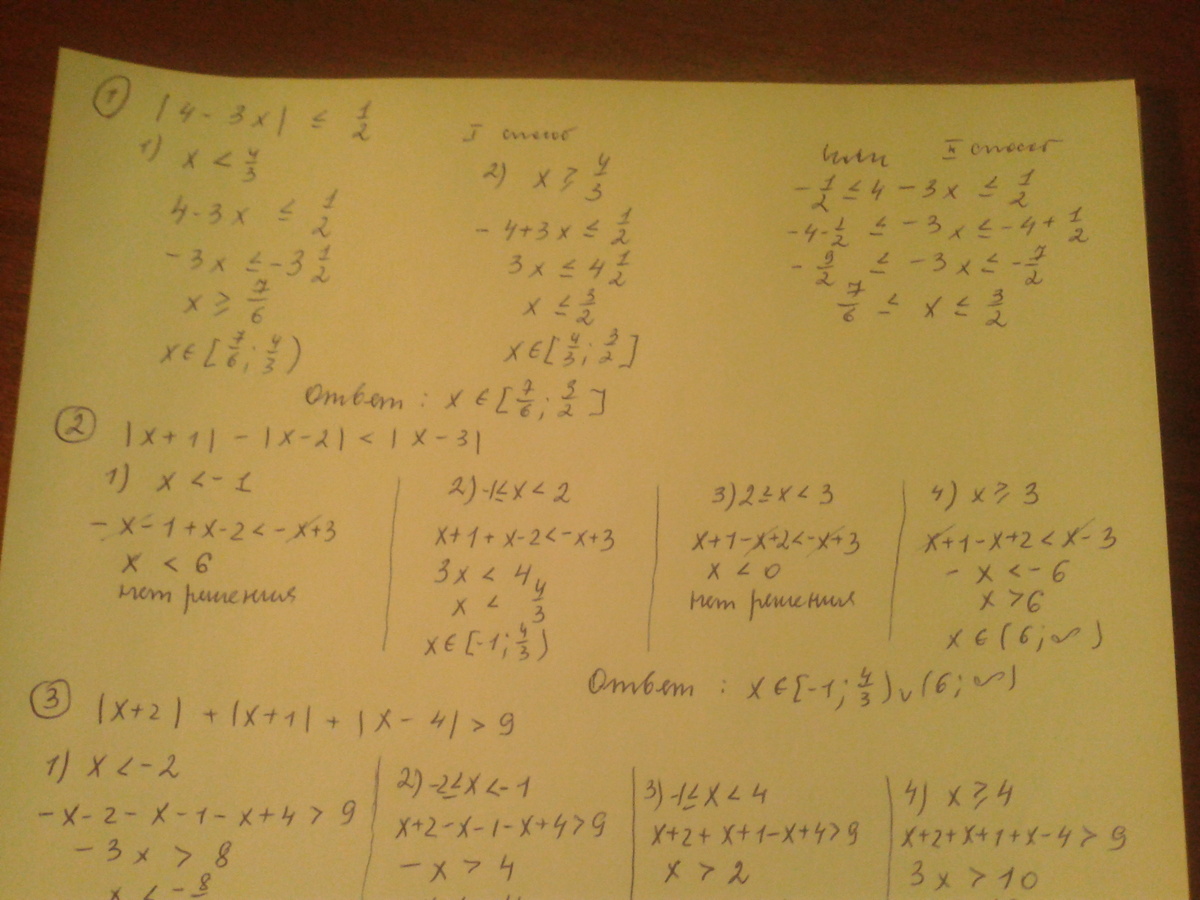 ① |4-3x| ≤ 1/2
I способ
1) x < 4/3
4-3x ≤ 1/2
-3x ≤ -3 1/2
x ≥ 7/6
x ∈ [7/6; 4/3)
2) x ≥ 4/3
-4+3x ≤ 1/2
3x ≤ 4 1/2
x ≤ 3/2
x ∈ [4/3; 3/2]
или II способ
-1/2 ≤ 4-3x ≤ 1/2
-4-1/2 ≤ -3x ≤ -4+1/2
-9/2 ≤ -3x ≤ -7/2
7/6 ≤ x ≤ 3/2
Ответ: x ∈ [7/6; 3/2]
② |x+1| - |x-2| < |x-3|
1) x < -1
-x-1+x-2<-x+3
x < 6
нет решения
2) -1≤x<2
x+1+x-2<-x+3
3x < 4
x < 4/3
x ∈ [-1; 4/3)
3) 2≤x<3
x+1-x+2<-x+3
x < 0
нет решения
4) x ≥ 3
x+1-x+2<x-3
-x < -6
x > 6
x ∈ (6; ∞)
Ответ: x ∈ [-1; 4/3) ∪ (6; ∞)
③ |x+2| + |x+1| + |x-4| > 9
1) x < -2
-x-2-x-1-x+4 > 9
-3x > 8
x < -8
2) -2≤x<-1
x+2-x-1-x+4>9
-x > 4
3) -1≤x<4
x+2+x+1-x+4>9
x > 2
4) x ≥ 4
x+2+x+1+x-4 > 9
3x > 10